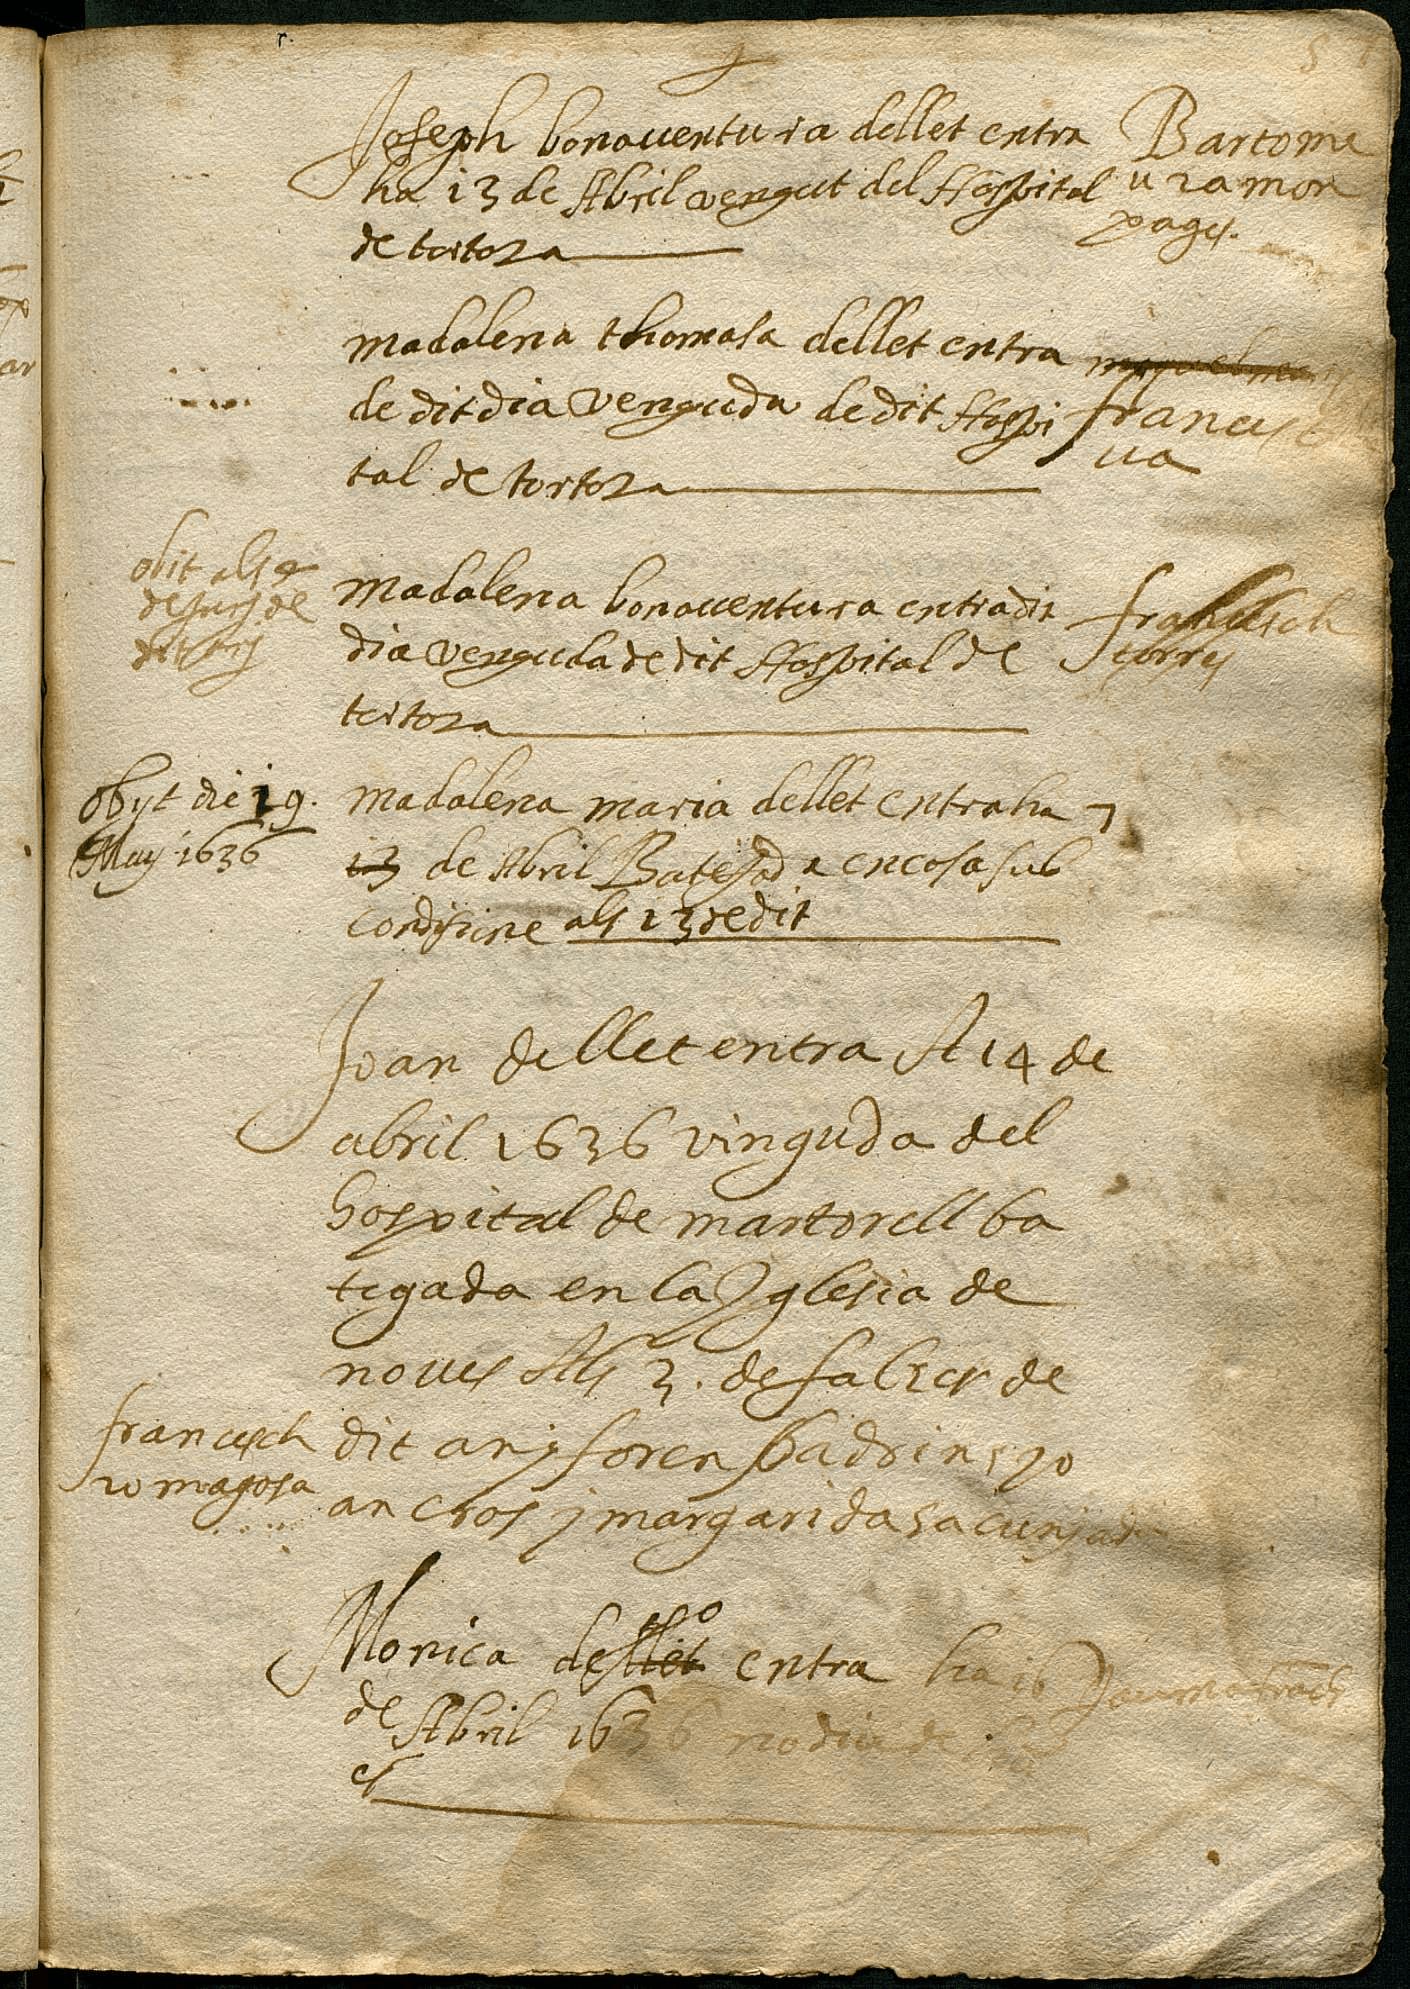 Joseph bonauentura dellet entra
ha 13 de Abril vengut del Hospital
de tortoza
Bartome
u ramon
pages.
madalena thomasa dellet entra
de dit dia venguda de dit Hospi
tal de tortoza
obit als 9
de juny de
dit any
madalena bonauentura entra dit
dia venguda de dit Hospital de
tortoza
francesch
torres
obyt die 19.
May 1636
madalena maria dellet entra ha 7
13 de Abril Batejada en cosa sub
condisione als 13 de dit
Joan dellet entra A 14 de
abril 1636 vinguda del
hospital de martorell ba
tegada en la Yglesia de
noues Als 3. de fabrer de
dit any foren padrins jo
an cros j margarida sa cunjad
francesch
romagosa
Monica dellet entra ha 16
de Abril 1636 no diu de
es
Jauma